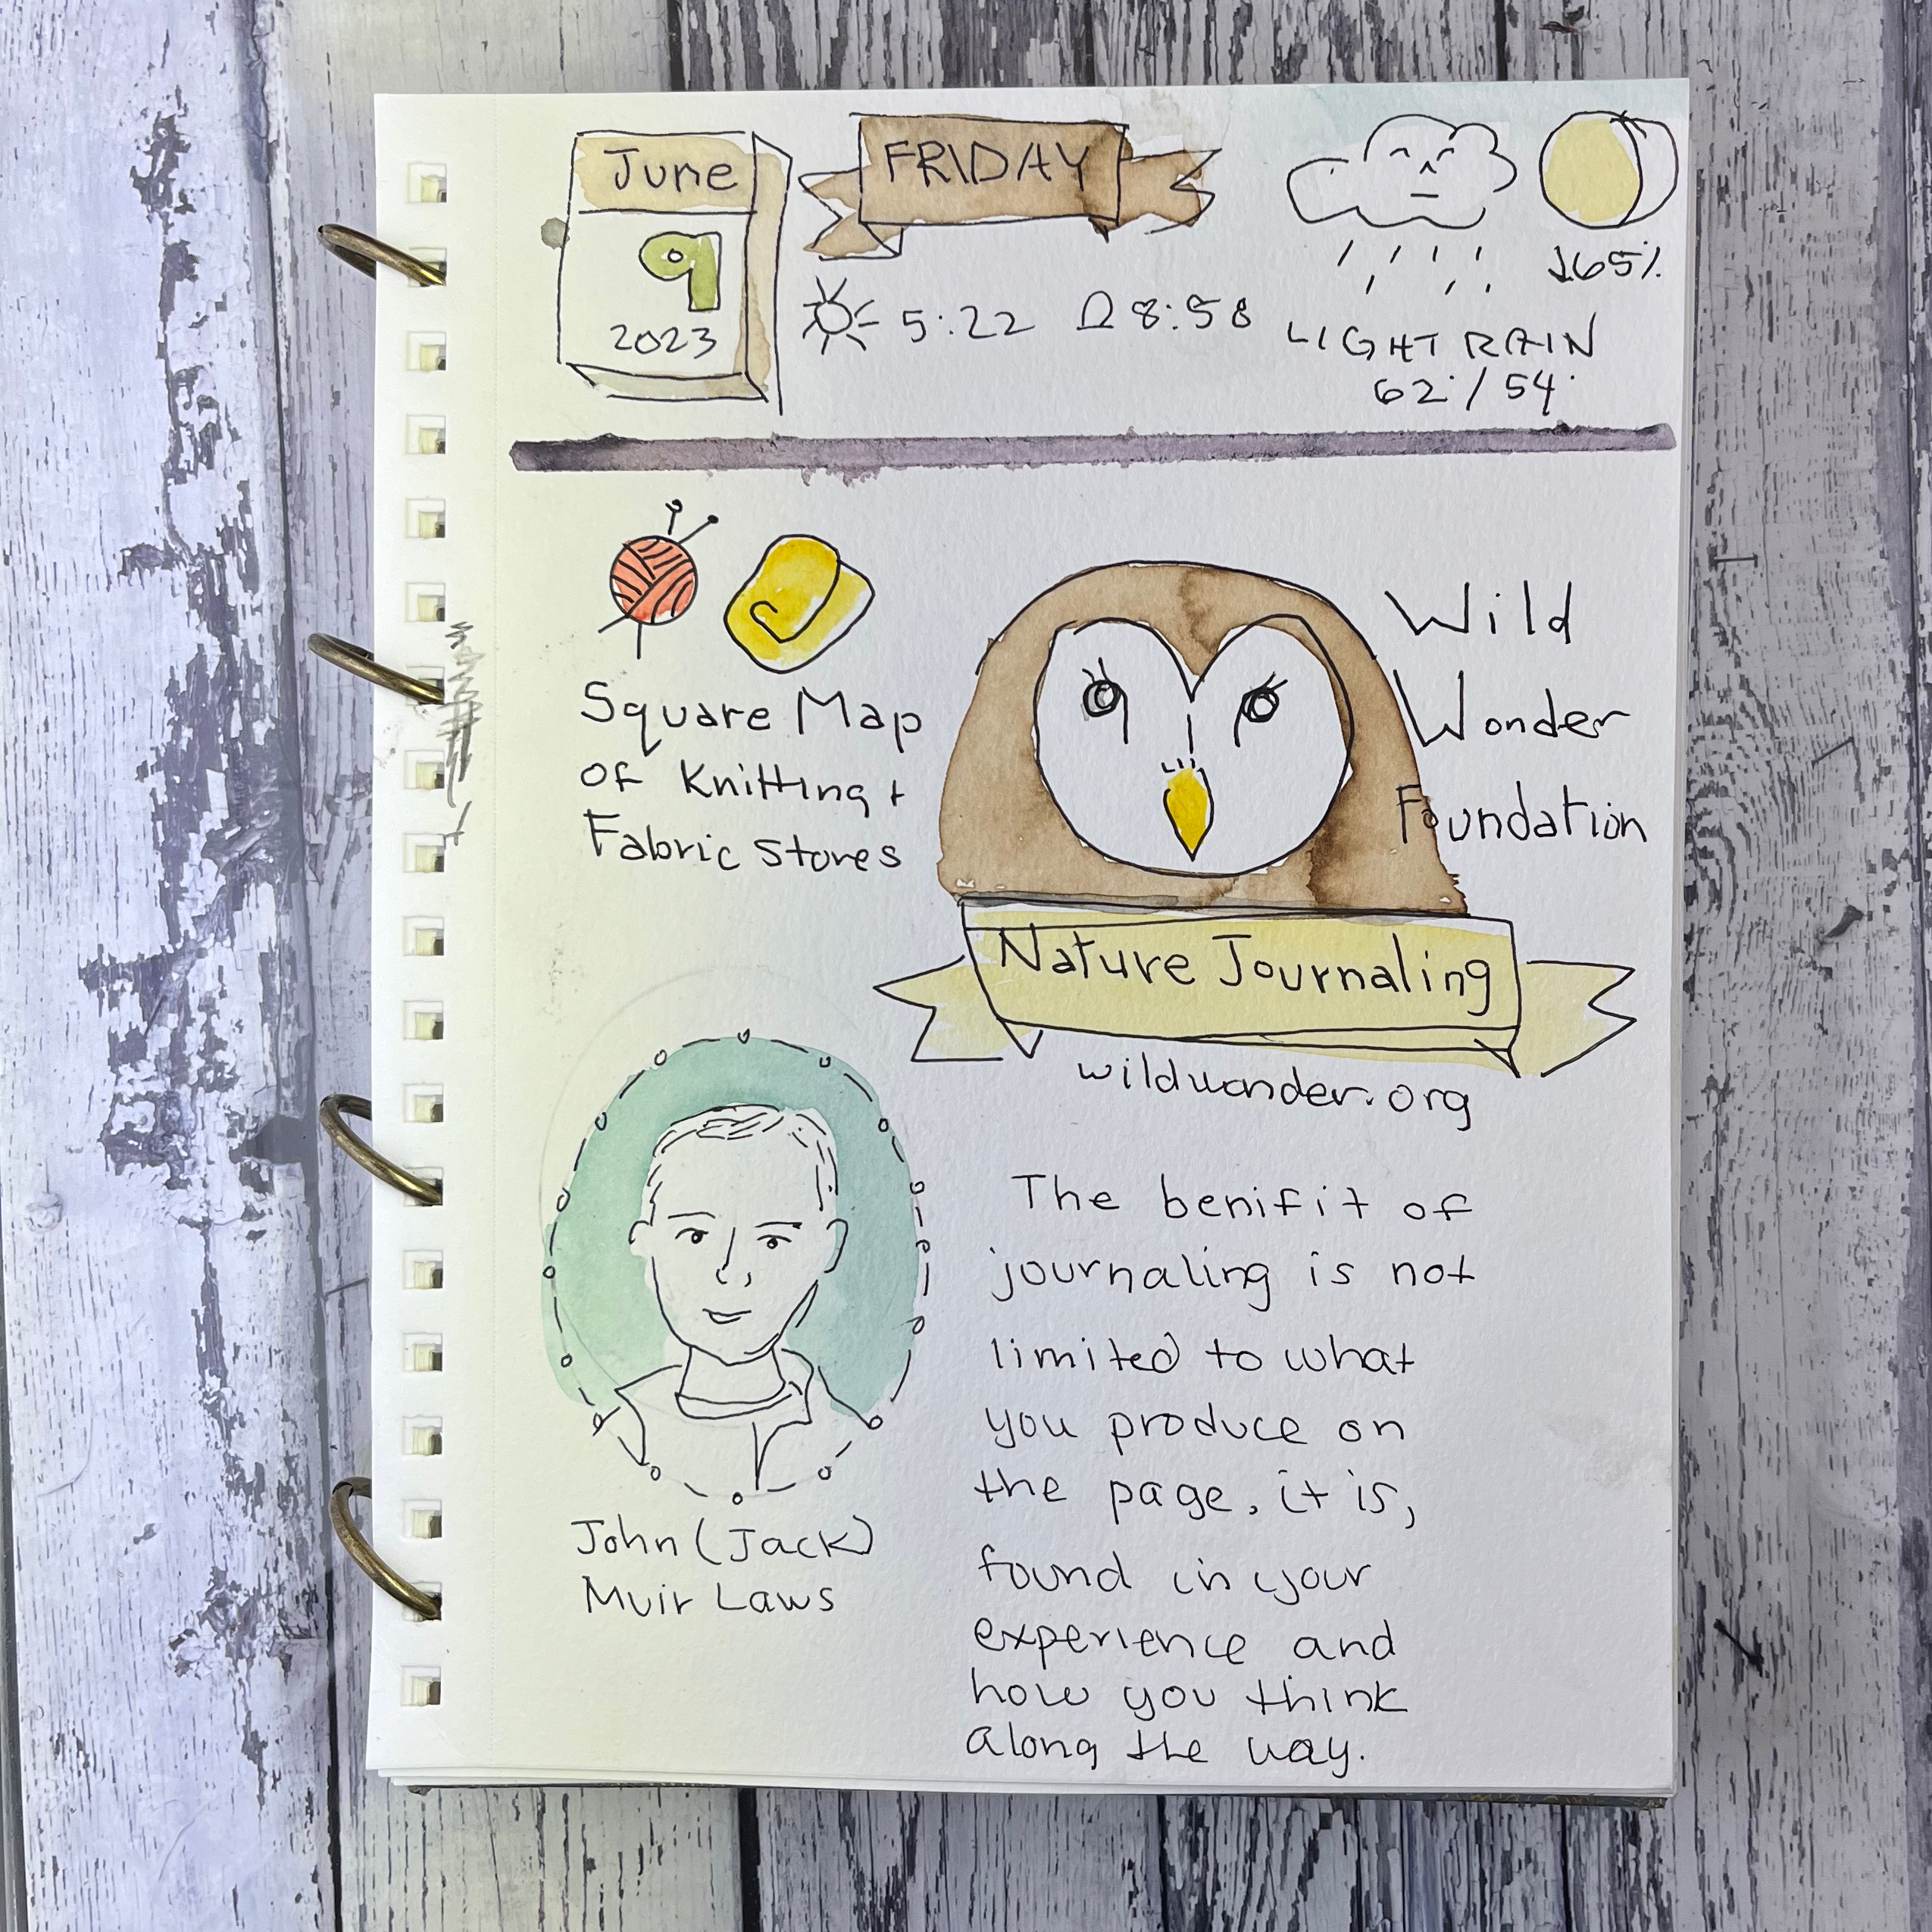 June
9
2023
FRIDAY
5:22 8:58
↓65%
LIGHT RAIN
62°/54°
Square Map
of Knitting +
Fabric Stores
Wild
Wonder
Foundation
Nature Journaling
wildwonder.org
John (Jack)
Muir Laws
The benifit of
journaling is not
limited to what
you produce on
the page, it is,
found in your
experience and
how you think
along the way.